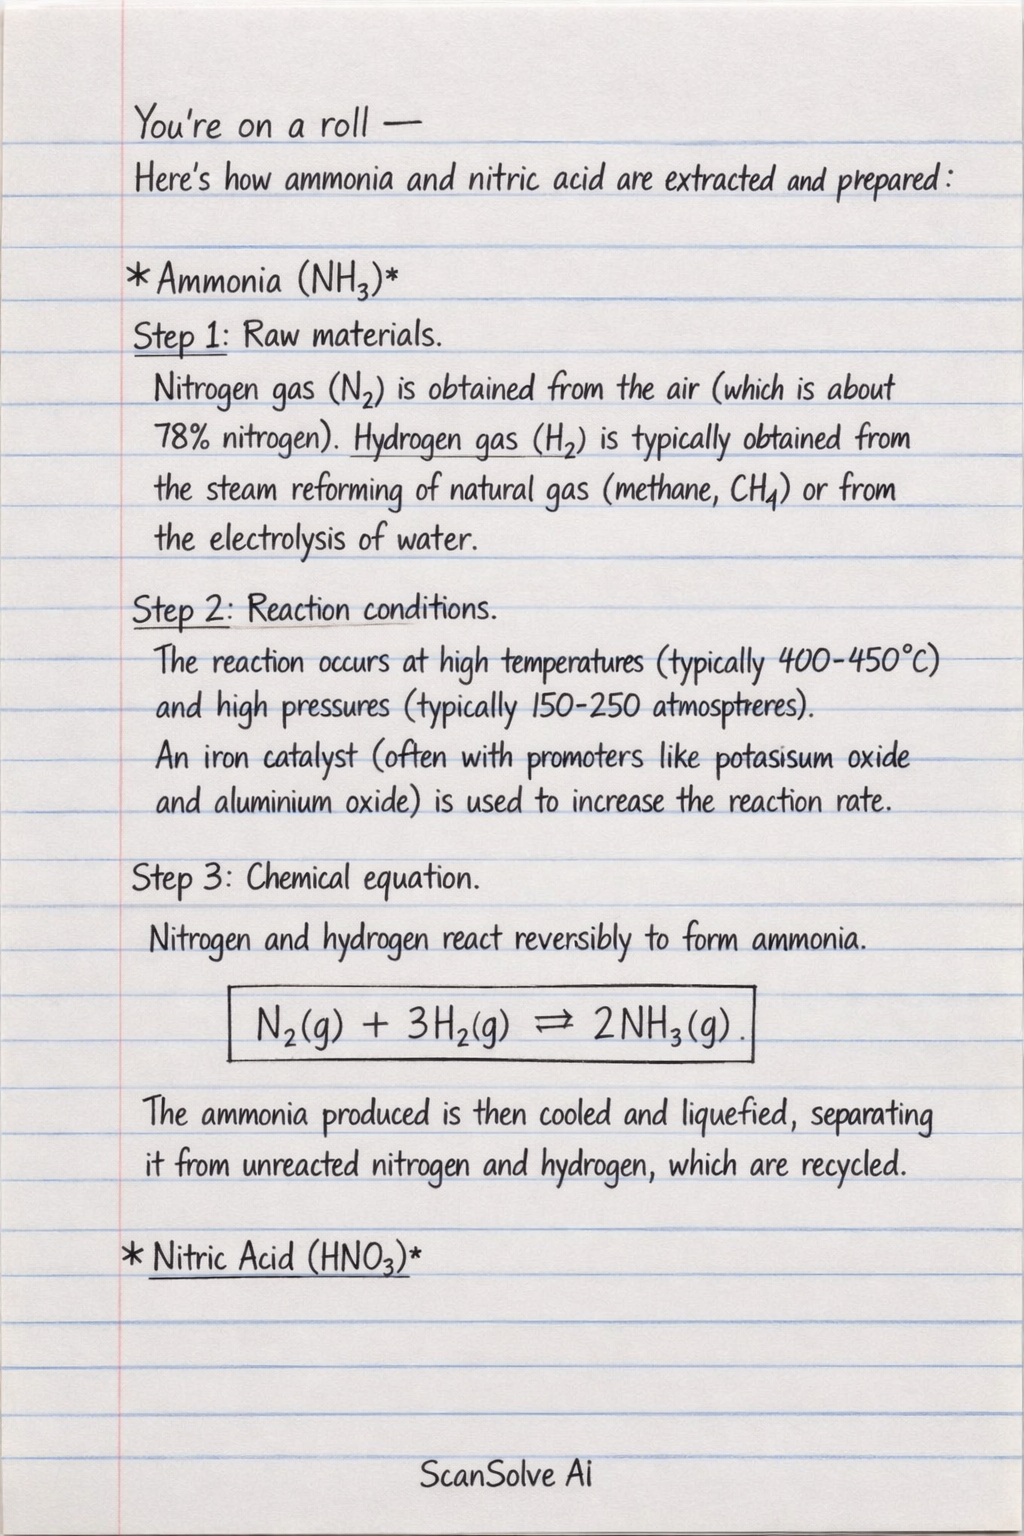 You're on a roll —
Here's how ammonia and nitric acid are extracted and prepared:
*Ammonia (NH₃)*
Step 1: Raw materials.
Nitrogen gas (N₂) is obtained from the air (which is about
78% nitrogen). Hydrogen gas (H₂) is typically obtained from
the steam reforming of natural gas (methane, CH₄) or from
the electrolysis of water.
Step 2: Reaction conditions.
The reaction occurs at high temperatures (typically 400-450°C)
and high pressures (typically 150-250 atmosptreres).
An iron catalyst (often with promoters like potasisum oxide
and aluminium oxide) is used to increase the reaction rate.
Step 3: Chemical equation.
Nitrogen and hydrogen react reversibly to form ammonia.
N₂(g) + 3H₂(g) ⇌ 2NH₃(g).
The ammonia produced is then cooled and liquefied, separating
it from unreacted nitrogen and hydrogen, which are recycled.
*Nitric Acid (HNO₃)*
ScanSolve Ai